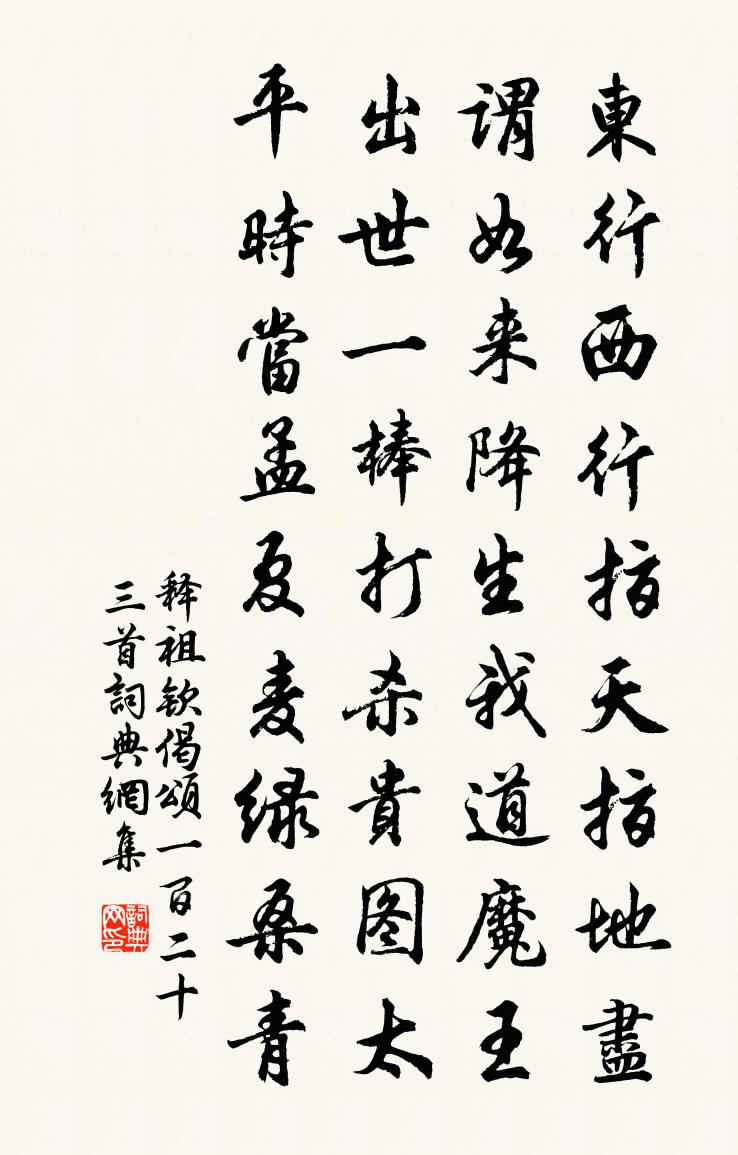 東行西行指天指地盡
謂如来降生我道魔王
出世一棒打杀貴图太
平時當孟夏麦绿桑青
释祖钦偈頌一百二十
三首詞典網集
詞典网印